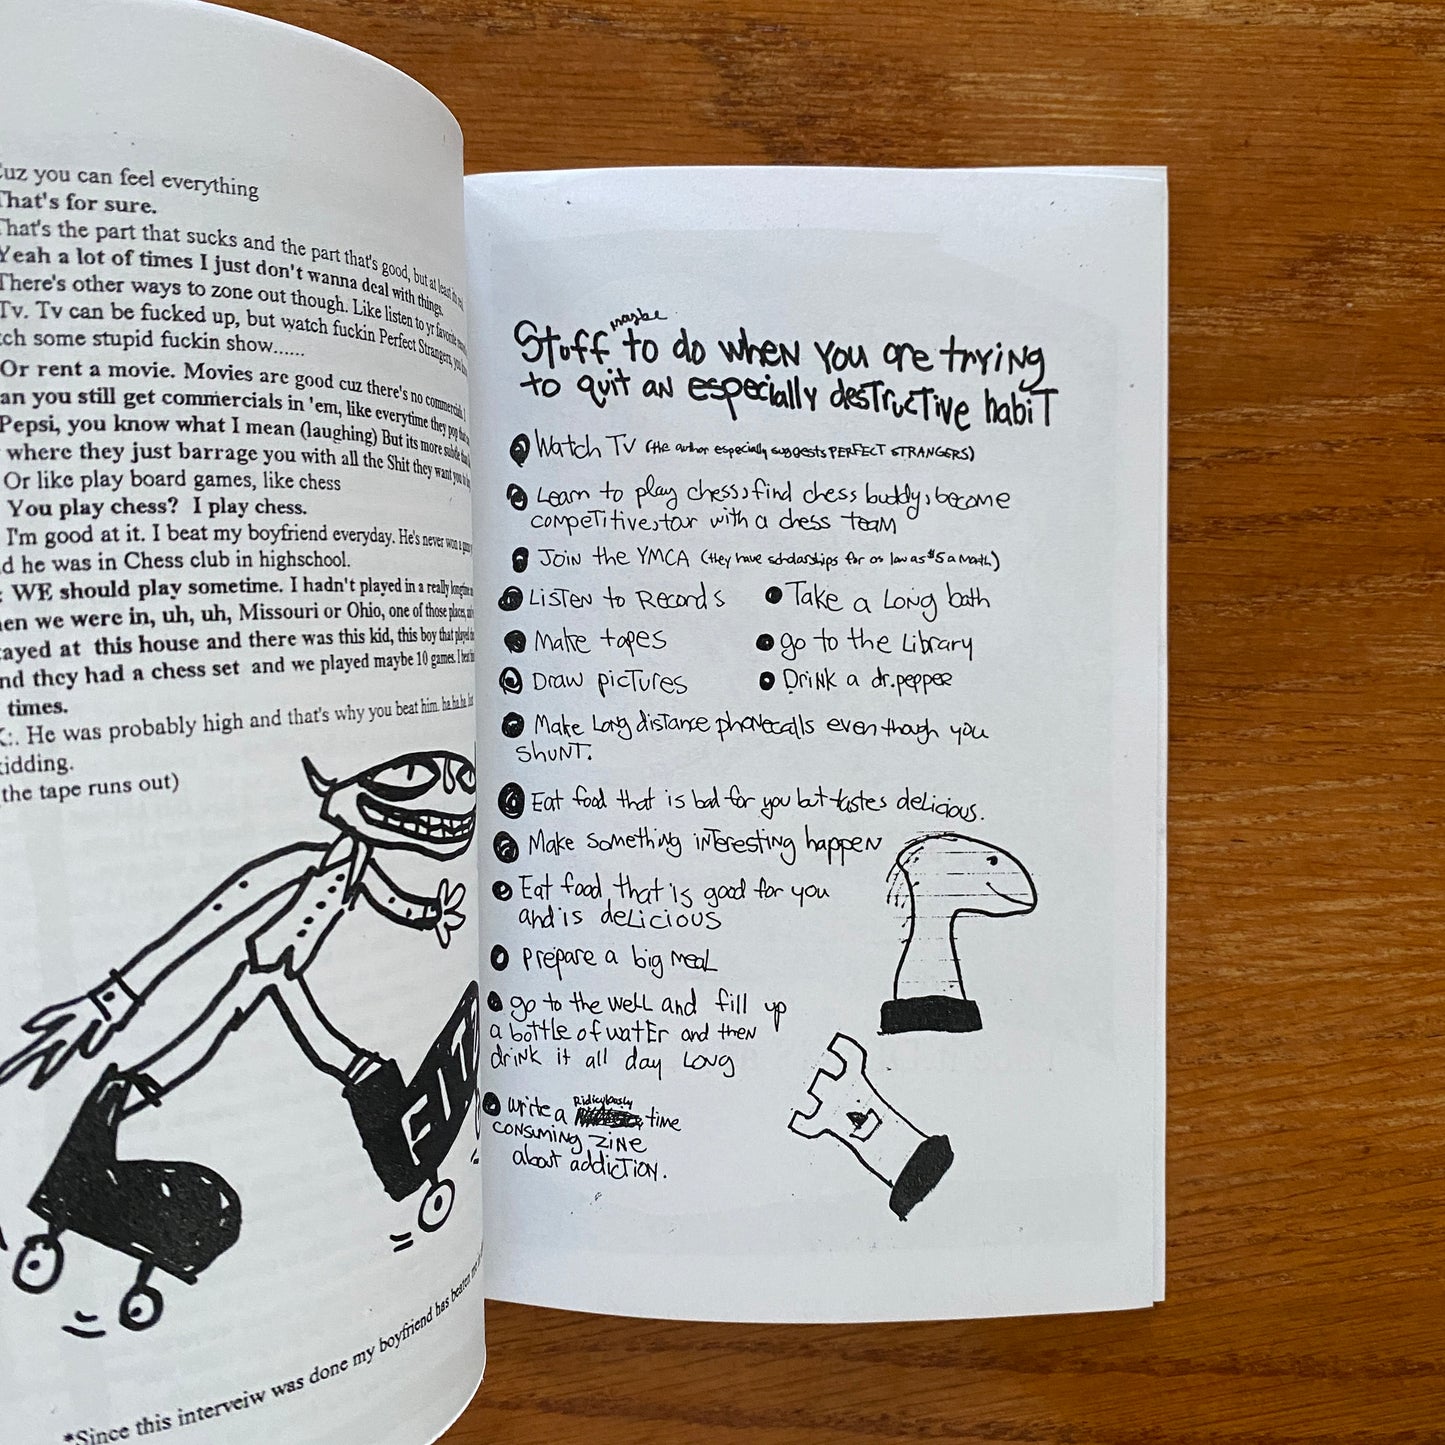 Cuz you can feel everything
That's for sure.
That's the part that sucks and the part that's good, but at least its real
Yeah a lot of times I just don't wanna deal with things.
There's other ways to zone out though. Like listen to yr favorite
Tv. Tv can be fucked up, but watch fuckin Perfect Strangers, you
tch some stupid fuckin show......
Or rent a movie. Movies are good cuz there's no commercials. I
an you still get commercials in 'em, like everytime they pop
Pepsi, you know what I mean (laughing) But its more subtle than
where they just barrage you with all the Shit they want you to
Or like play board games, like chess
You play chess? I play chess.
I'm good at it. I beat my boyfriend everyday. He's never won a game
d he was in Chess club in highschool.
: WE should play sometime. I hadn't played in a really longtime
en we were in, uh, uh, Missouri or Ohio, one of those places,
ayed at this house and there was this kid, this boy that played
nd they had a chess set and we played maybe 10 games. I beat
times.
K:. He was probably high and that's why you beat him. ha.ha.ha. Just
kidding.
(the tape runs out)
FIT
*Since this interveiw was done my boyfriend has beaten me
maybe
Stuff to do when you are trying
to quit an especially destructive habit
Watch TV (the author especially suggests PERFECT STRANGERS)
Learn to play chess, find chess buddy, become
competitive, tour with a chess team
Join the YMCA (they have scholarships for as low as $5 a month)
Listen to Records
Take a Long bath
Make tapes
go to the Library
Draw pictures
Drink a dr.pepper
Make Long distance phonecalls even though you
shunt.
Eat food that is bad for you but tastes delicious.
Make something interesting happen
Eat food that is good for you
and is delicious
prepare a big meal
go to the well and fill up
a bottle of water and then
drink it all day Long
write a Ridiculously time
consuming zine
about addiction.